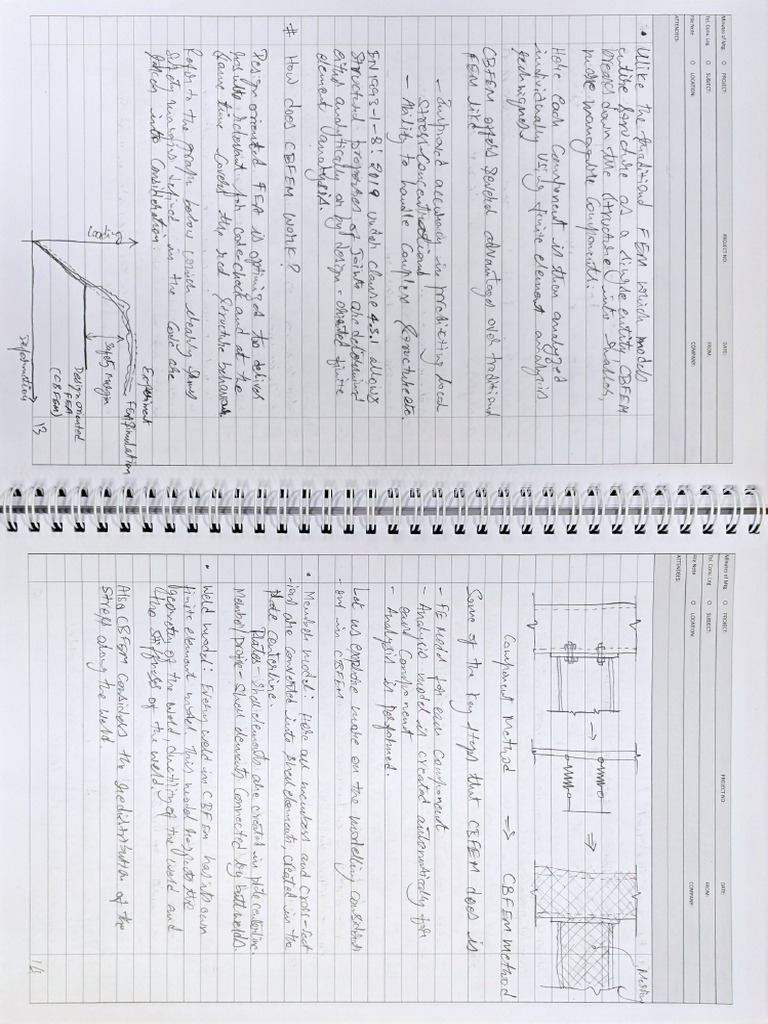 Minutes of Mtg. O PROJECT: PROJECT NO: DATE:
Tel. Conv. Log O SUBJECT: FROM:
File Note O LOCATION: COMPANY:
ATTENDEES:
• Ulike the traditional FEM which models
entire structure as a single entity CBFEM
breaks down the structure into smaller,
more managable components.
Here each component is then analyzed
individually using finite element analysis
techniques
CBFEM offers several advantages over traditional
FEM like
- Improved accuracy in predicting local
stress concentrations
- Ability to handle complex structure etc.
EN 1993-1-8: 2019 under clause 4.3.1 allows
structural properties of joints are determined
either analytically or by design - oriented finite
element analysis.
# How does CBFEM work?
Design oriented FEA is optimized to deliver
results relevant for code check and at the
same time covers the real structure behaviour.
Refer to the graph below which clearly shows
safety margins defined in the code are
taken into consideration.
Loading
Experiment
FEA Simulation
Safety margin
Design oriented
FEA
(CBFEM)
Deformation
13
Minutes of Mtg. O PROJECT: PROJECT NO: DATE:
Tel. Conv. Log O SUBJECT: FROM:
File Note O LOCATION: COMPANY:
ATTENDEES:
Meshing
Component Method → CBFEM method
Some of the key steps that CBFEM does is
- FE Model for each component
- Analysis model is created automatically for
each component
- Analysis is performed.
Let us explore more on the modelling consideratio
- ons in CBFEM
• Member model: Here all members and cross-sect
-ions are converted into shell elements, created in the
plate centerline.
Plates - Shell elements are created in plate centerline.
Member/profile - Shell elements connected by butt welds.
• Weld model: Every weld in CBFEM has its own
finite element model. This model the
geometry of the weld, ductility of the weld and
the stiffness of the weld.
Also CBFEM considers the redistribution of the
stress along the weld
14